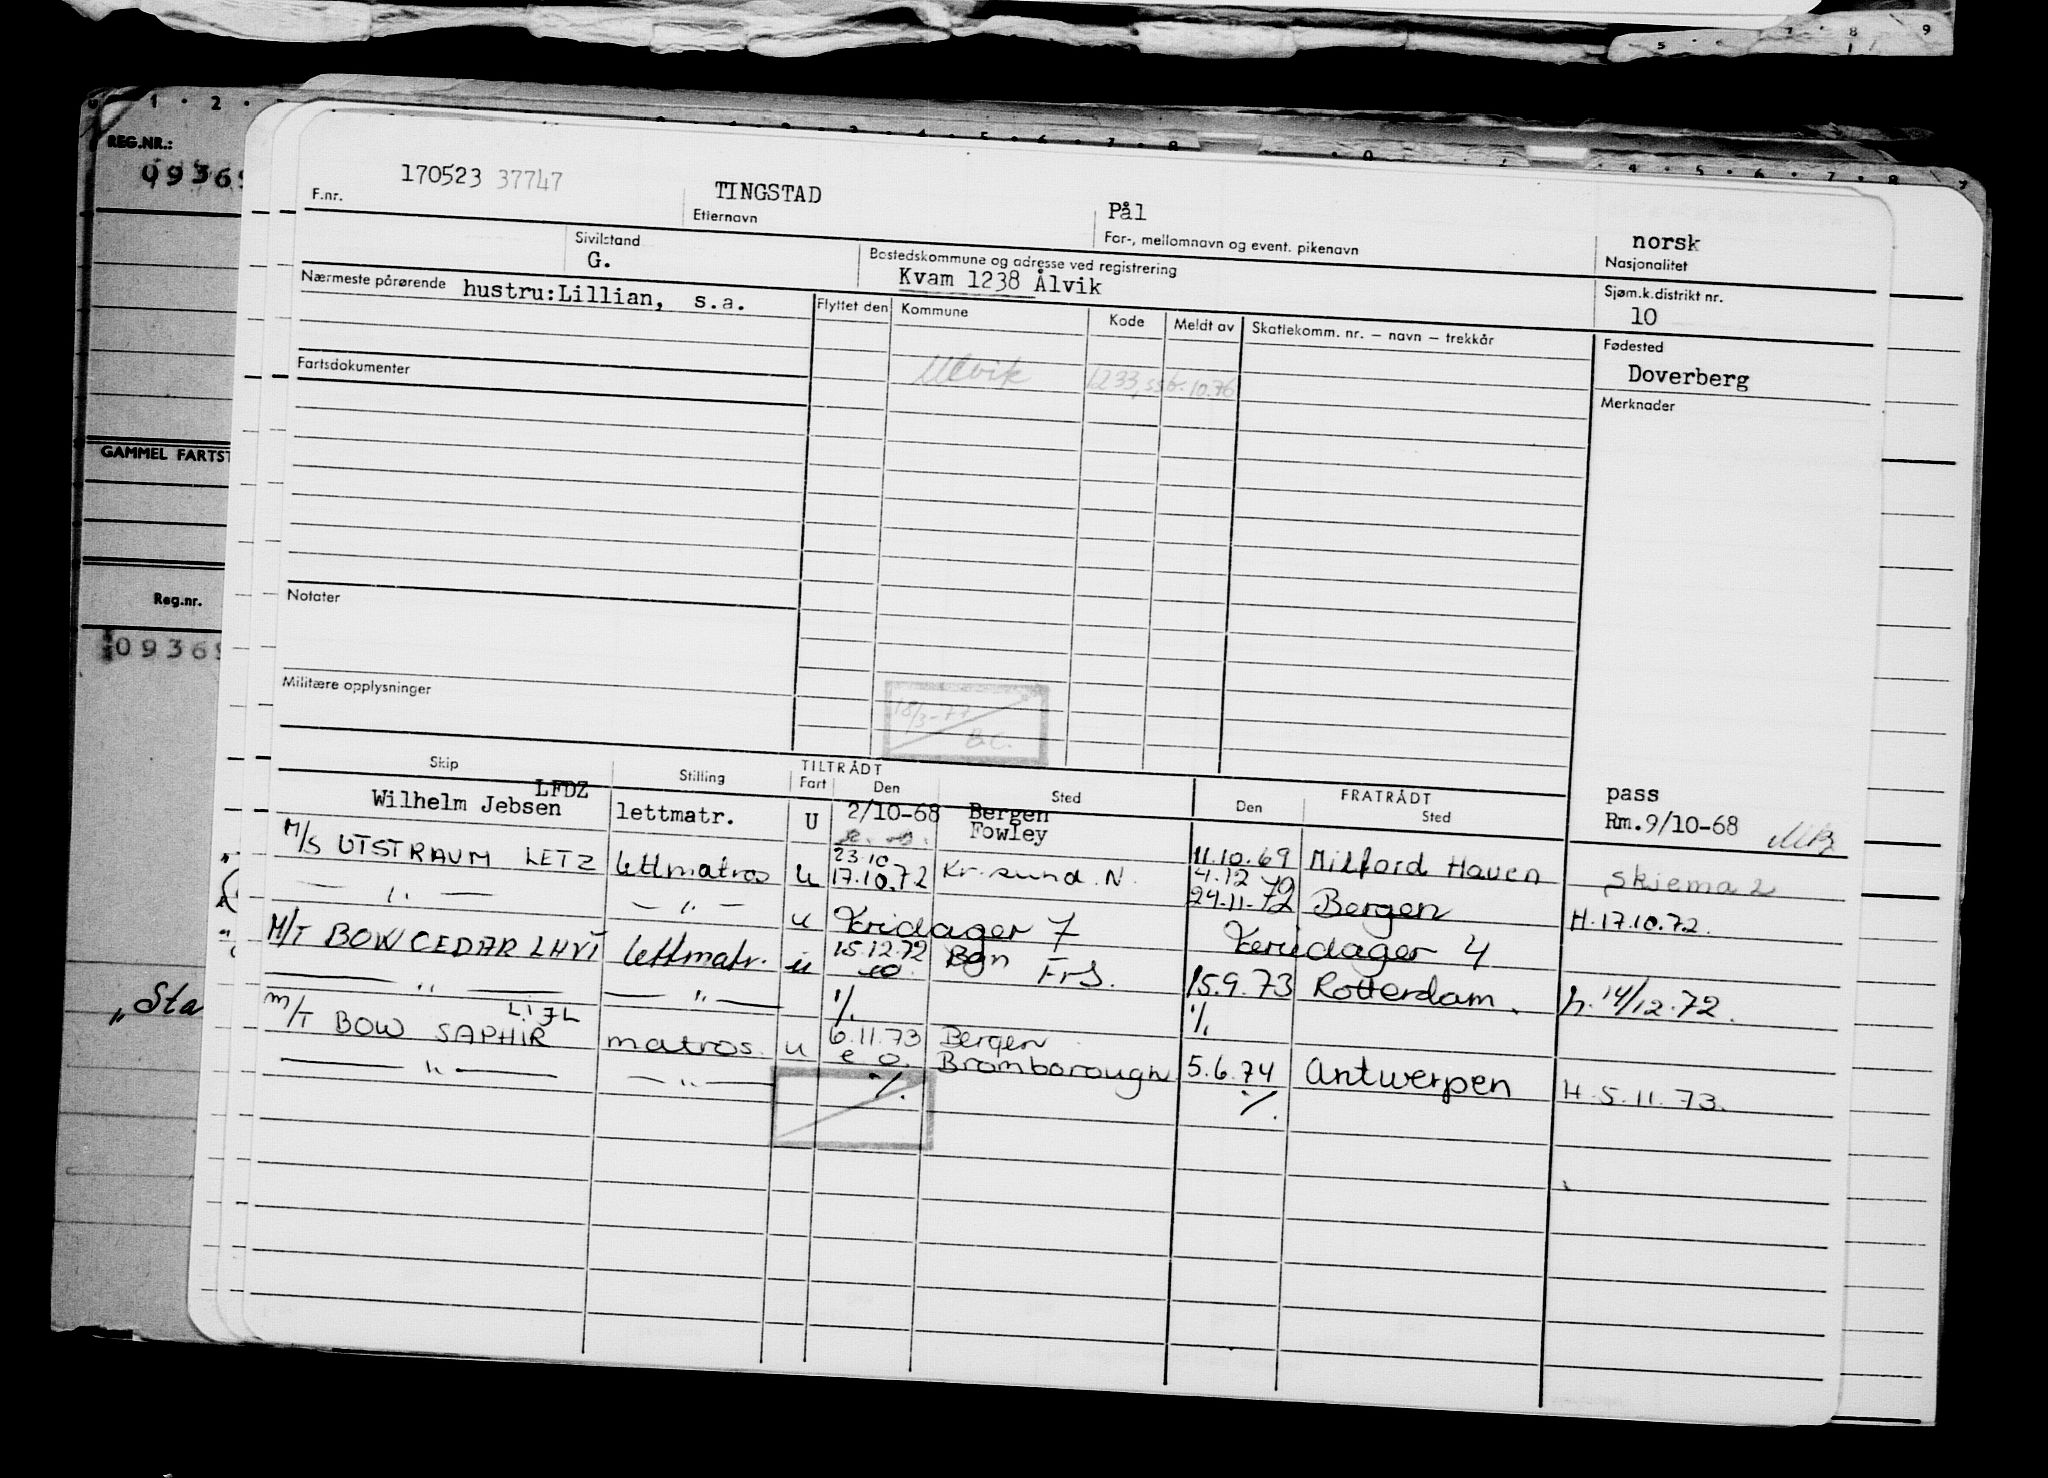 REG.NR.:
GAMMEL FARTST
Reg.nr.
"Sta
170523 37747
F.nr.
TINGSTAD
Etternavn
Pål
For-, mellomnavn og event. pikenavn
norsk
Nasjonalitet
Sivilstand
G.
Bostedskommune og adresse ved registrering
Kvam 1238 Ålvik
Sjøm.k.distrikt nr.
10
Nærmeste pårørende hustru:Lillian, s.a.
Flyttet den Kommune Kode Meldt av Skattekomm. nr. – navn – trekkår
Fødested
Doverberg
Ulvik 1233, ssb. 10.76
Fartsdokumenter
Merknader
Notater
Militære opplysninger
18/3-77
Skip Stilling TILTRÅDT Fart Den Sted FRATRÅDT Den Sted
LFDZ
Wilhelm Jebsen lettmatr. U 2/10-68 Bergen
Fowley
11.10.69 Milford Haven
pass
Rm.9/10-68
M/S UTSTRAUM LETZ lettmatros u 23.10
17.10.72 Kr.sund.N.
4.12
24.11.72 Bergen
skjema 2
— " — — " — u Feridager 7 Feriedager 4
H.17.10.72.
M/T BOW CEDAR LHVI lettmatr. u 15.12.72 Bgn
eo FrS. 15.9.73 Rotterdam.
h. 14/12.72.
— " — — " — %. %.
LIJL
M/T BOW SAPHIR matros. u 6.11.73 Bergen
e o. Bromborough 5.6.74 Antwerpen
H.5.11.73.
— " — — " — %. %.